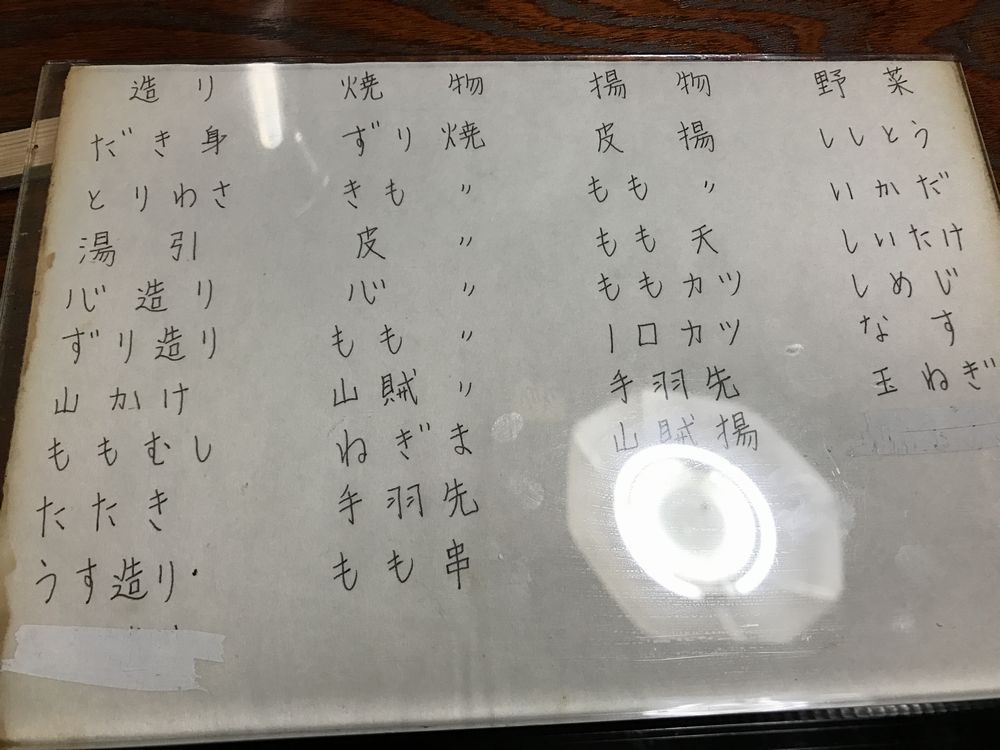 造り 焼物 揚物 野菜
だき身 ずり焼 皮揚 ししとう
とりわさ きも〃 もも〃 いかだ
湯引 皮〃 もも天 しいたけ
心造り 心〃 ももカツ しめじ
ずり造り もも〃 一口カツ なす
山かけ 山賊〃 手羽先 玉ねぎ
ももむし ねぎま 山賊揚
たたき 手羽先
うす造り・ もも串